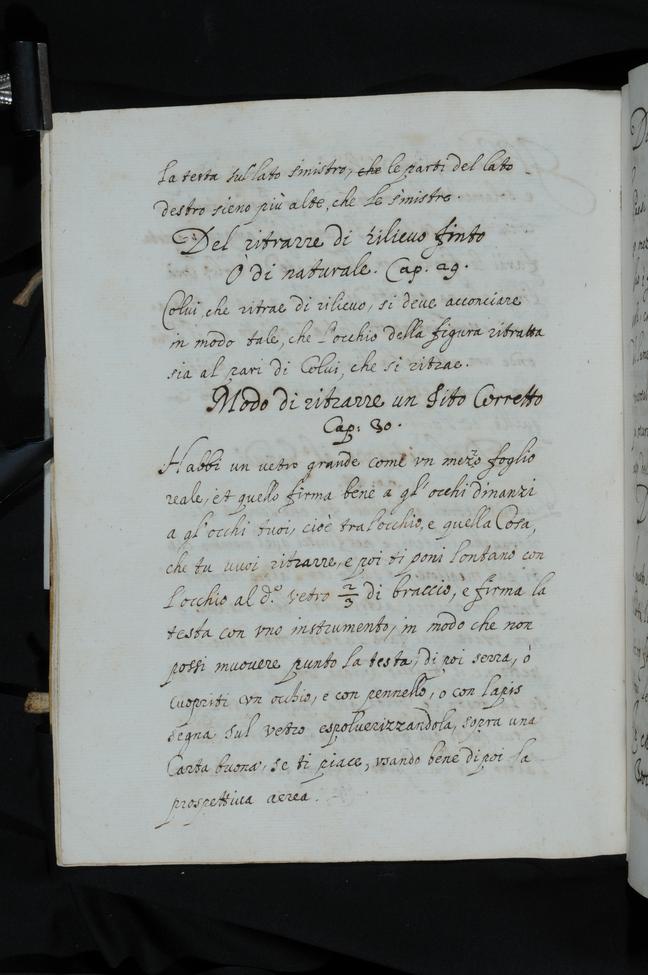 la testa sul lato sinistro, che le parti del lato
destro sieno più alte, che le sinistre.
Del ritrarre di rilievo finto
Ò di naturale. Cap. 29.
Colui, che ritrae di rilievo, si deve acconciare
in modo tale, che l'occhio della figura ritratta
sia al pari di Colui, che si ritrae.
Modo di ritrarre un Sito Corretto
Cap: 30.
Habbi un vetro grande come vn mezo foglio
reale, et quello firma bene a gl'occhi dinanzi
a gl'occhi tuoi, cioè tra l'occhio, e quella Cosa,
che tu vuoi ritrarre, e poi ti poni lontano con
l'occhio al d.º vetro 2/3 di braccio, e firma la
testa con vno instrumento, in modo che non
possi muovere punto la testa, di poi serra, ò
cuopriti vn occhio, e con pennello, ò con lapis
segna sul vetro espolverizzandola, sopra una
Carta buona, se ti piace, vsando bene di poi la
prospettiva aerea.